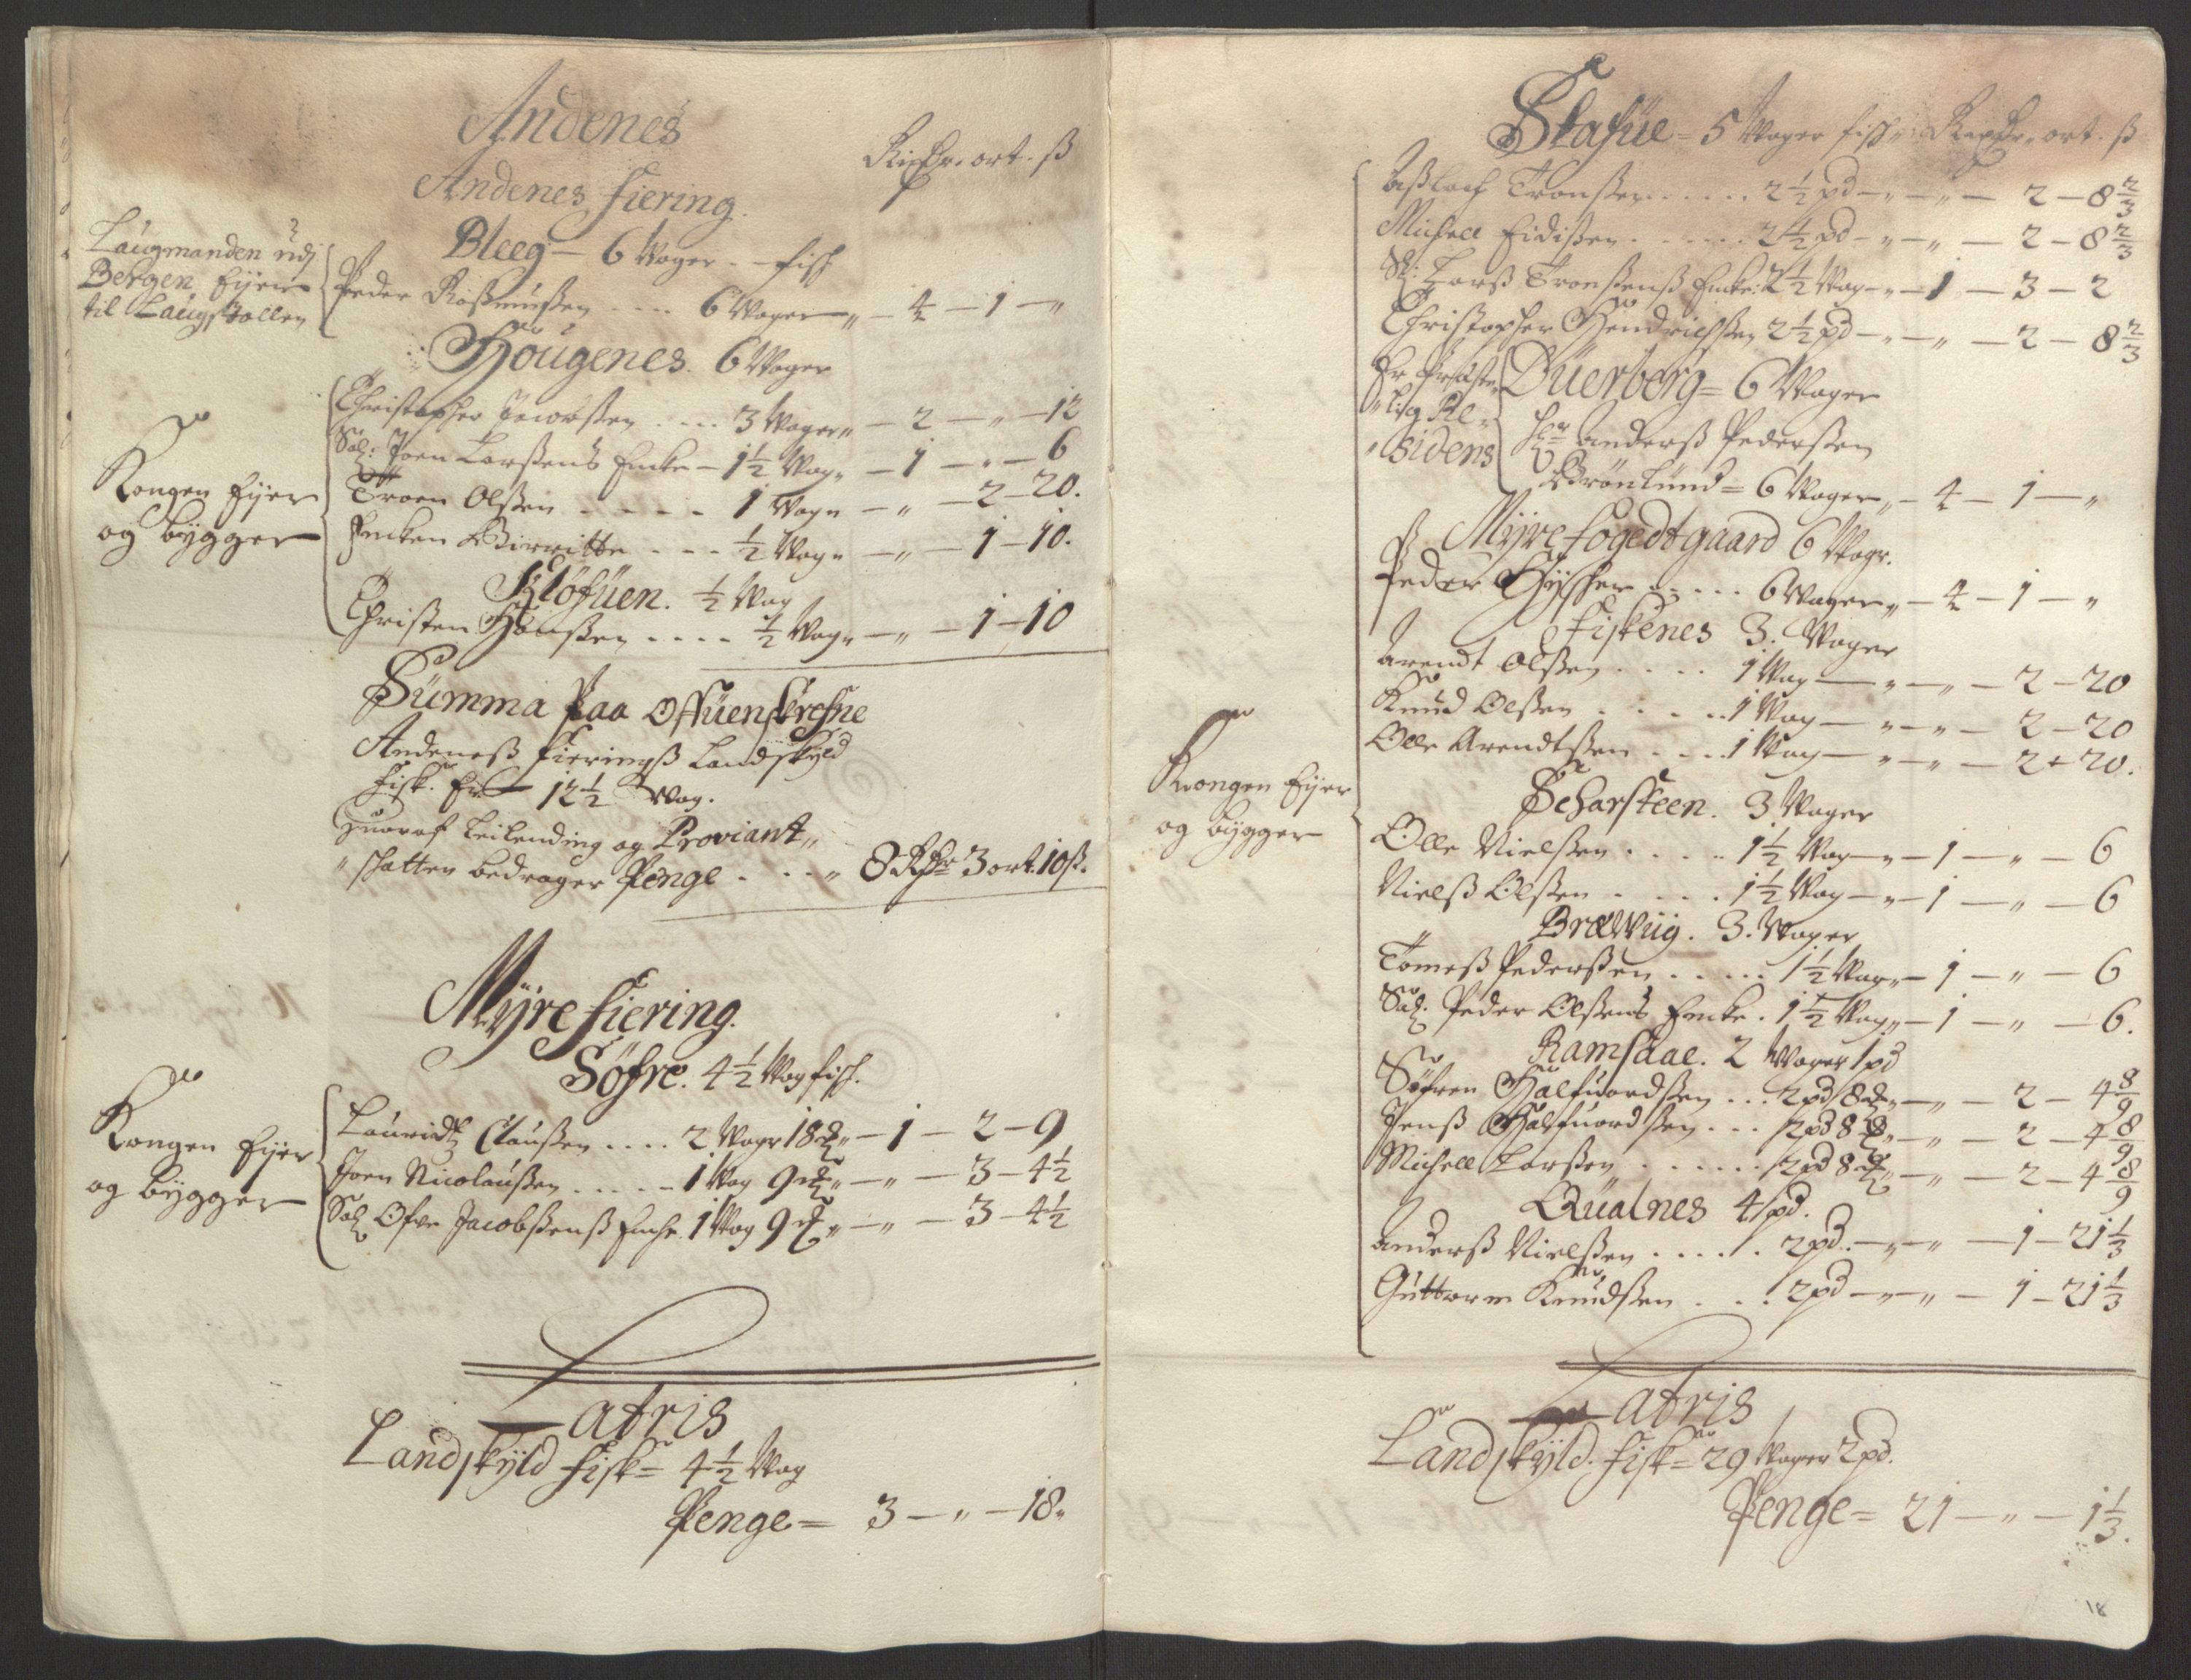 Andenes
Rixdr. ort. ß
Andenes fiering.
Bleeg – 6 Woger – fisk
Laugmanden udj
Bergen Eyer
til Laugstollen
Peder Rasmußen .... 6 Woger „ – 4 – 1 – „
Hougenes. 6 Woger
Kongen Eyer
og bygger
Christopher .... 3 Woger „ – 2 – „ – 12
Sal: Joen Larßens Encke – 1½ Wog „ – 1 – „ – 6
Troen Olßen ..... 1 Wog „ – „ – 2 – 20.
Encken Birritte ... ½ Wog „ – „ – 1 – 10.
Kløfuen. ½ Wog
Christen Hanßen .... ½ Wog „ – „ – 1 – 10
Summa Paa Ofüenschrefne
Andeneß fieringß Landskyld
fisk. Er – 12½ Wog.
huoraf Leilending og Proviant „
„ skatten bedrager Penge ... „ 8 Rdr 3 ort. 10 ß.
Myre fiering.
Søfre. 4½ Wog fisk.
Kongen Eyer
og bygger
Lauridtz Claußen .... 2 Woger 18 ℔ „ – 1 – 2 – 9
Joen Nicolaußen ..... 1 Wog 9 ℔ „ – „ – 3 – 4½
Sal. Ofve Jacobßenß Encke. 1 Wog 9 ℔ „ – „ – 3 – 4½
Latris
Landskyld fisk = 4½ Wog
Penge = 3 – „ – 18 „
Stafüe = 5 Woger fisk „ Rixdr. ort. ß
Aßlach Tronßen ...... 2½ pd – „ – „ – 2 – 8 2/3
Michell Eidißen ...... 2½ pd – „ – „ – 2 – 8 2/3
Sl: Larß Tronßenß Encke: 2½ Wog – „ – 1 – 3 – 2
Christopher Hendrichßen 2½ pd – „ – „ – 2 – 8 2/3
Er Præste
„ lig Re „
„ sidens
Düerberg = 6 Woger
Hr Anderß Pederßen
Brønlund = 6 Woger „ – 4 – 1 – „
Myre fogedtgaard 6 Wogr.
Peder Hysher ..... 6 Woger „ – 4 – 1 – „
Fiskenes 3. Woger
Arendt Olßen .... 1 Wog – „ – „ – 2 – 20
Knud Olßen ..... 1 Wog – „ – „ – 2 – 20
Olle Arendtßen .... 1 Wog – „ – „ – 2 + 20.
Kongen Eyer
og bygger
Scharsteen. 3 Woger
Olle Nielßen ..... 1½ Wog – „ – 1 – „ – 6
Nielß Olßen ..... 1½ Wog – „ – 1 – „ – 6
„ Bræwüg. 3. Woger
Tomeß Pederßen ..... 1½ Wog „ – 1 – „ – 6
Sal. Peder Olßens Encke. 1½ Wog „ – 1 – „ – 6.
Ramsdae. 2 Woger 1 pd
Søfren Halfuordßen ... 2 pd 8 ℔ „ – „ – 2 – 4 8/9
Jenß Halfuordßen ... 2 pd 8 ℔ „ – „ – 2 – 4 8/9
Michell Larßen ...... 2 pd 8 ℔ „ – „ – 2 – 4 8/9
Qualnes 4 pd.
Anderß Nielßen ..... 2 pd. – „ – „ – 1 – 21 1/3
Guttorm Knudßen ... 2 pd – „ – „ – 1 – 21 1/3
Latris
Landskyld. fisk = 29 Woger 2 pd.
Penge = 21 – „ – 1 1/3.
18